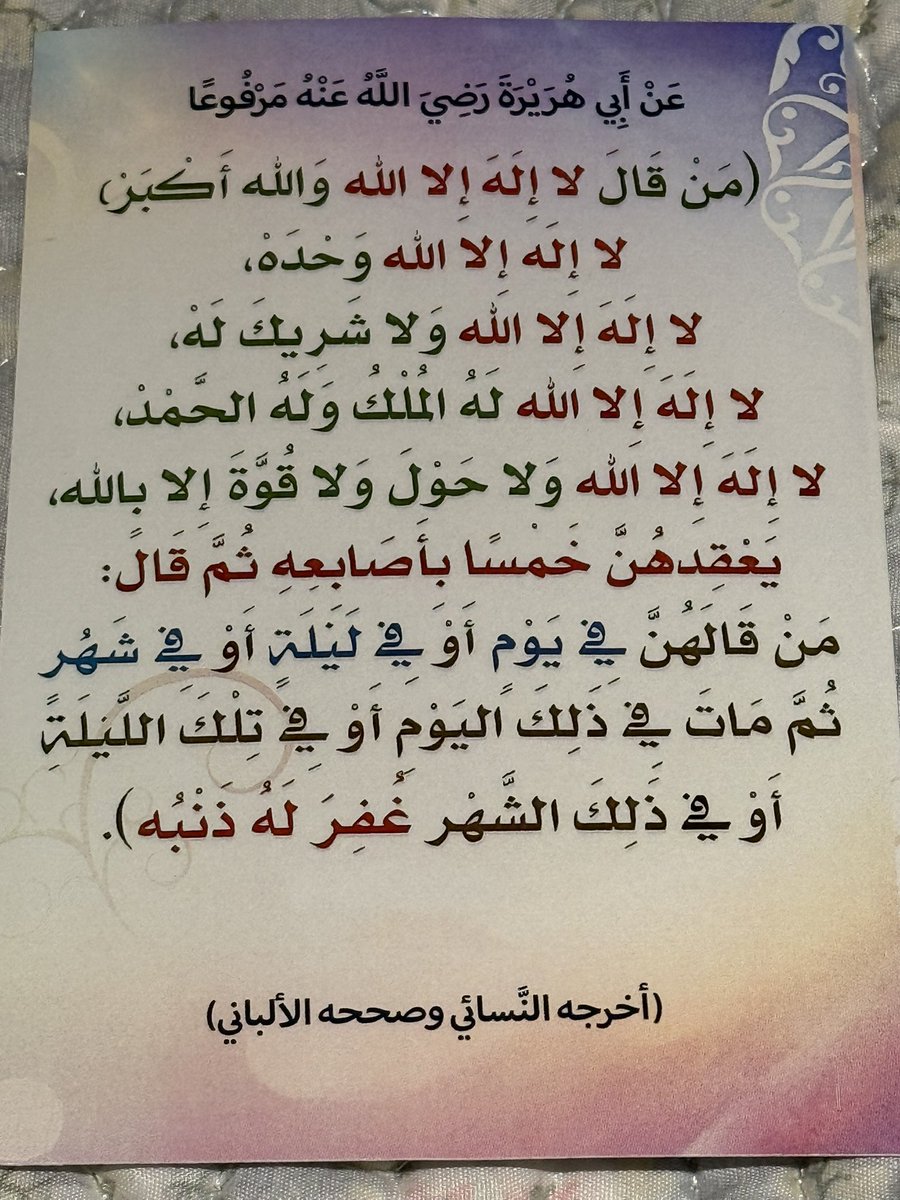 عَنْ أَبِي هُرَيْرَةَ رَضِيَ اللَّهُ عَنْهُ مَرْفُوعًا
(مَنْ قَالَ لا إِلَهَ إِلا الله وَالله أَكْبَرْ،
لا إِلَهَ إِلا الله وَحْدَهْ،
لا إِلَهَ إِلا الله وَلا شَرِيكَ لَهْ،
لا إِلَهَ إِلا الله لَهُ الُملْكُ وَلَهُ الحَّمْدْ،
لا إِلَهَ إِلا الله وَلا حَوْلَ وَلا قُوَّةَ إِلا بِالله،
يَعْقِدَهُنَّ خَمْسًا بأَصَابعِهِ ثُمَّ قَالَ:
مَنْ قَالَهُنَّ فِي يَوْم أَوْ فِي لَيَلَةٍ أَوْ فِي شَهُر
ثُمَّ مَاتَ فِي ذَلِكَ اليَوْمِ أَوْ فِي تِلْكَ اللَّيَلَةِ
أَوْ فِي ذَلِكَ الشَّهْرِ غُفِرَ لَهُ ذَنْبُه).
(أخرجه النَّسائي وصححه الألباني)